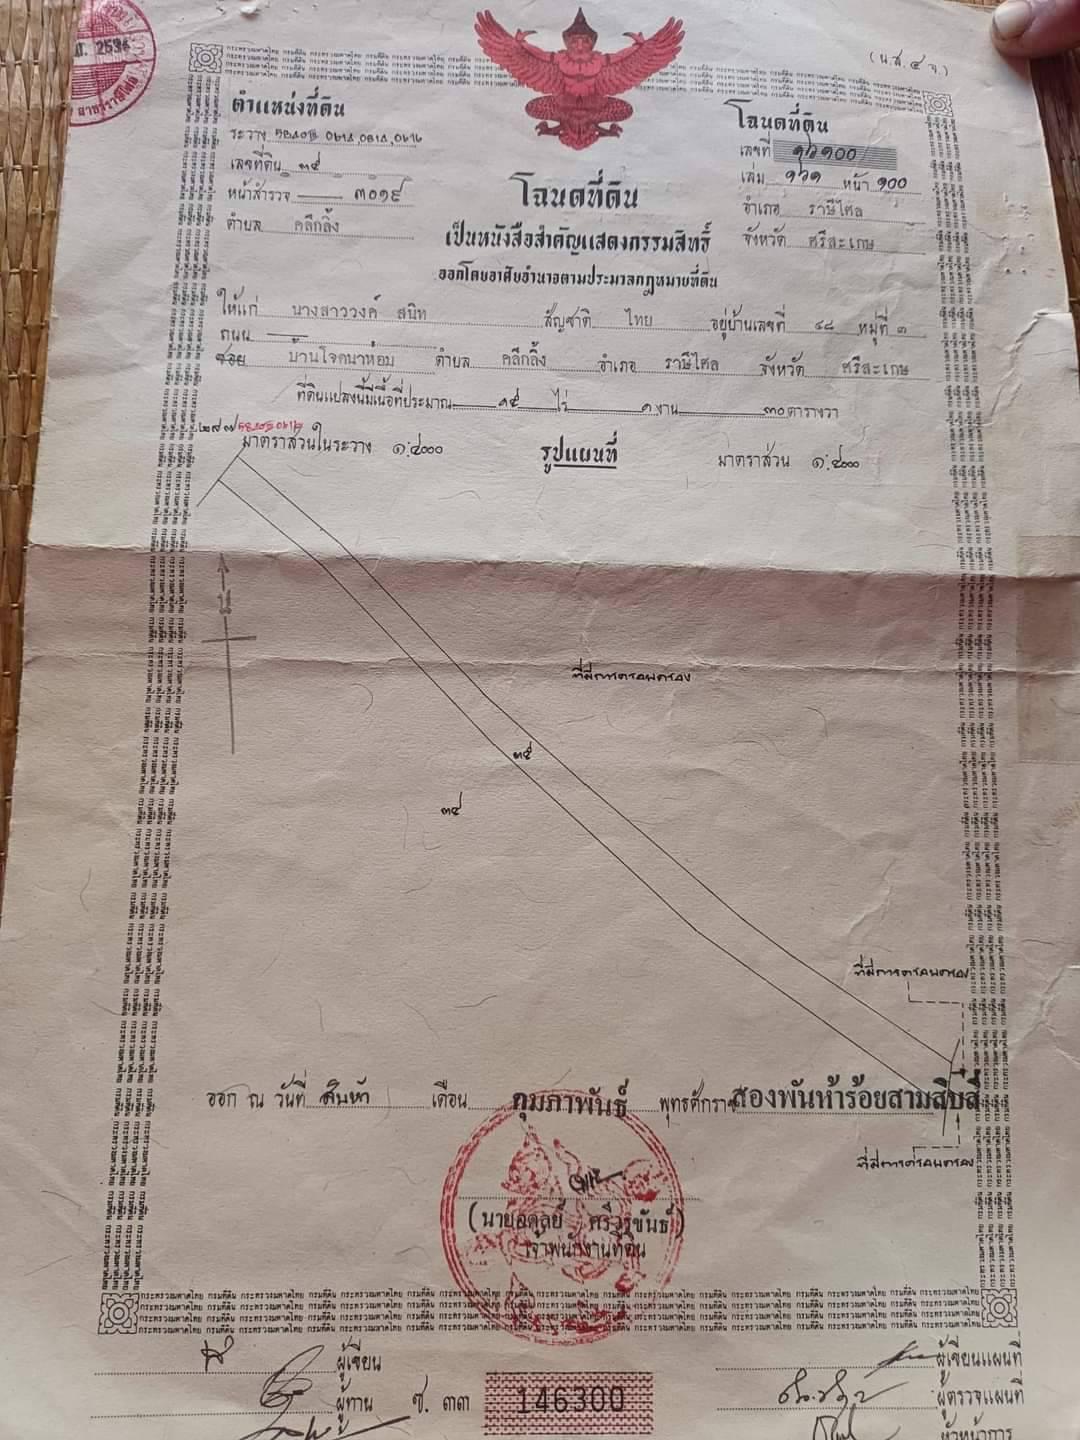 (น.ส.๔ จ.)
ตำแหน่งที่ดิน
ระวาง
เลขที่ดิน ๓๕
หน้าสำรวจ ๓๐๑๙
ตำบล คลีกลิ้ง
โฉนดที่ดิน
เลขที่ ๑๖๑๐๐
เล่ม ๑๖๑ หน้า ๑๐๐
อำเภอ ราษีไศล
จังหวัด ศรีสะเกษ
โฉนดที่ดิน
เป็นหนังสือสำคัญแสดงกรรมสิทธิ์
ออกโดยอาศัยอำนาจตามประมวลกฎหมายที่ดิน
ให้แก่ นางสาววงค์ สนิท สัญชาติ ไทย อยู่บ้านเลขที่ ๔๘ หมู่ที่ ๓
ถนน
ซอย บ้านโจดนาห่อม ตำบล คลีกลิ้ง อำเภอ ราษีไศล จังหวัด ศรีสะเกษ
ที่ดินแปลงนี้มีเนื้อที่ประมาณ ๑๕ ไร่ ๑ งาน ๓๐ ตารางวา
มาตราส่วนในระวาง ๑:๔๐๐๐ รูปแผนที่ มาตราส่วน ๑:๔๐๐๐
ที่มีการครอบครอง
๓๕
๓๔
ที่มีการครอบครอง
ออก ณ วันที่ สิบห้า เดือน กุมภาพันธ์ พุทธศักราช สองพันห้าร้อยสามสิบสี่
ที่มีการครอบครอง
(นายอดุลย์ ศรีวรขันธ์)
เจ้าพนักงานที่ดิน
ผู้เขียน
ผู้เขียนแผนที่
ผู้ทาน ช. ๓๓ 146300
ผู้ตรวจแผนที่
หัวหน้าการ